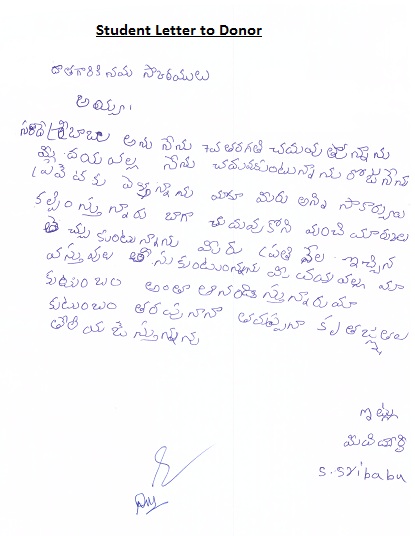 Student Letter to Donor
దాతగారికి నమ స్కారములు
అయ్యా,
శ్రీబాబు అను నేను 7వ తరగతి చదువుతోన్నాను
మీ దయవల్ల నేను చదువుకుంటున్నాను రోజు నేను
మాకు మీరు అన్ని సౌకర్యాలు
కల్పిం స్తు న్నారు బాగా చదువుకోని మంచి మార్కులు
తె చ్చు కుంటున్నాను మీ రు ప్రతి నెల ఇచ్చిన
వస్తువుల తీసుకుంటుంన్నాను మీ దయవల్ల మా
కుటుంబం అంతా ఆనందిస్తున్నారు మా
కుటుంబం తరపున నా తరుపునా కృతజ్ఞతలు
తెలియజేస్తున్నాను
ఇట్లు
మీ విద్యార్థి
S. Sribabu